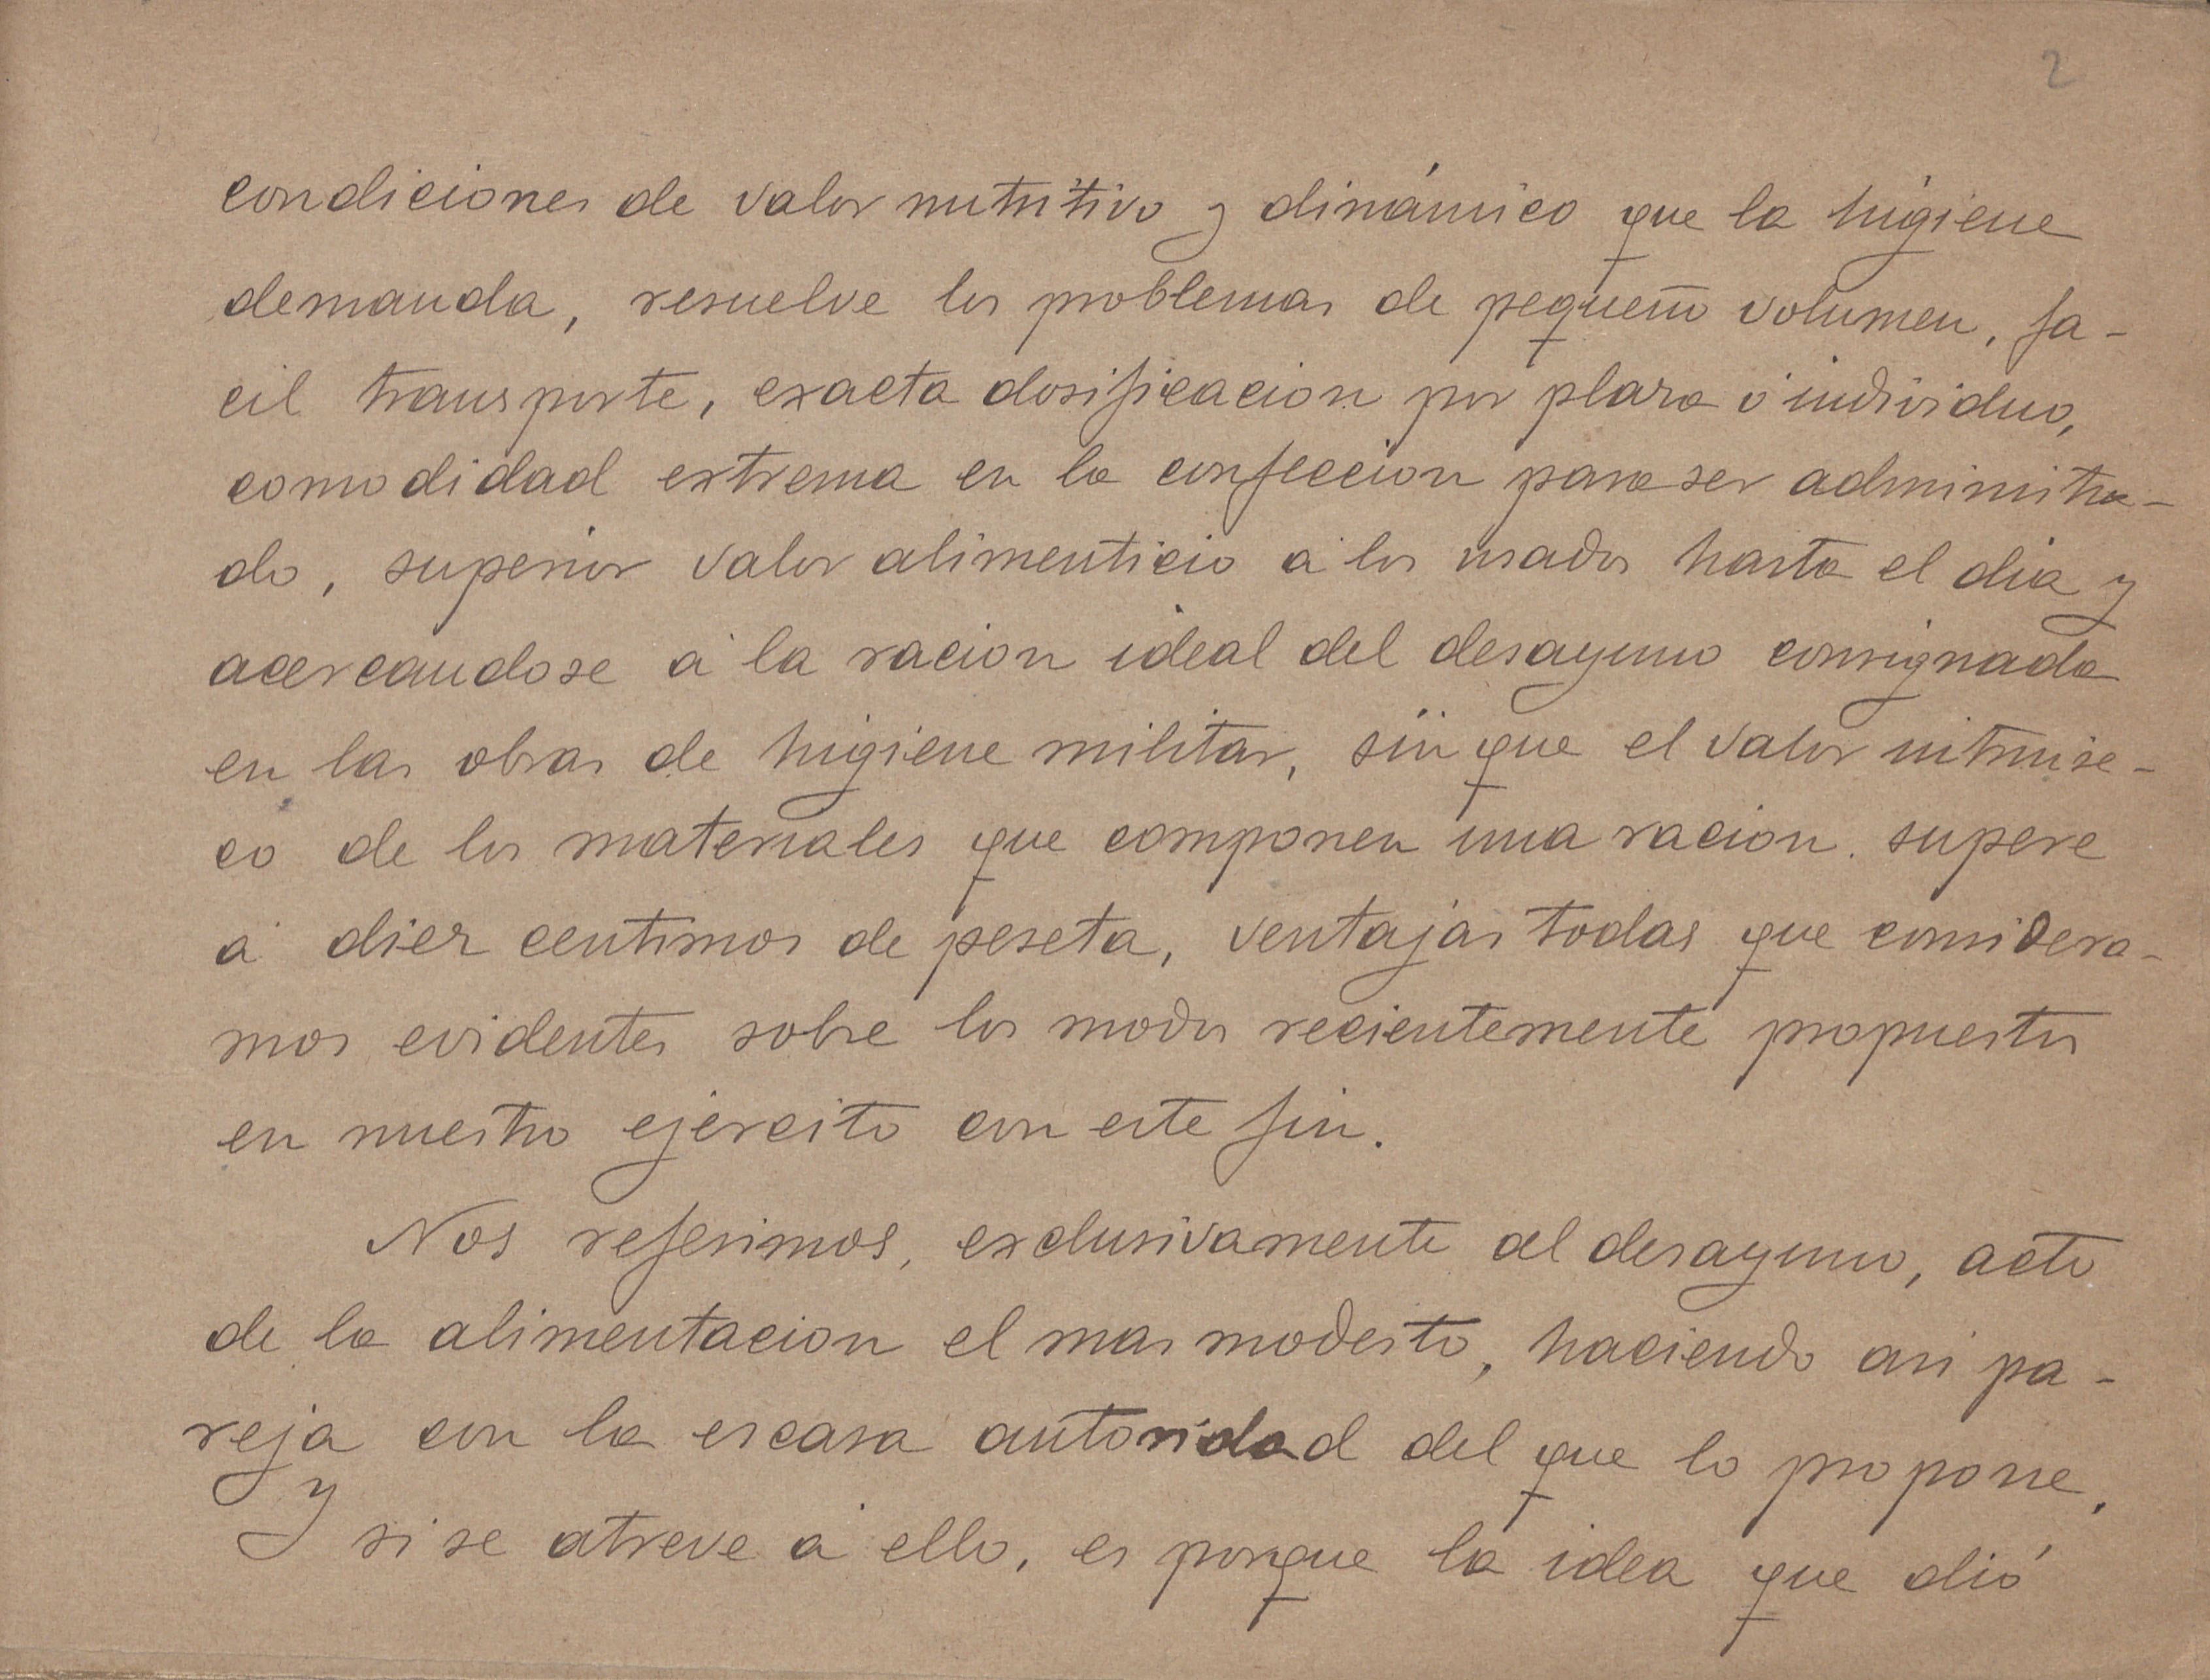 2
condiciones de valor nutritivo y dinámico que la higiene
demanda, resuelve los problemas de pequeño volumen, fa-
cil transporte, exacta dosificacion por plaza ó individuo,
comodidad extrema en la confeccion para ser administra-
do, superior valor alimenticio á los usados hasta el dia y
acercandose á la racion ideal del desayuno consignada
en las obras de higiene militar, sin que el valor intrinse-
co de los materiales que componen una racion supere
á diez centimos de peseta, ventajas todas que considera-
mos evidentes sobre los modos recientemente propuestos
en nuestro ejercito con este fin.
Nos referimos, exclusivamente al desayuno, acto
de la alimentacion el mas modesto, haciendo asi pa-
reja con la escasa autoridad del que lo propone,
y si se atreve á ello, es porque la idea que dió